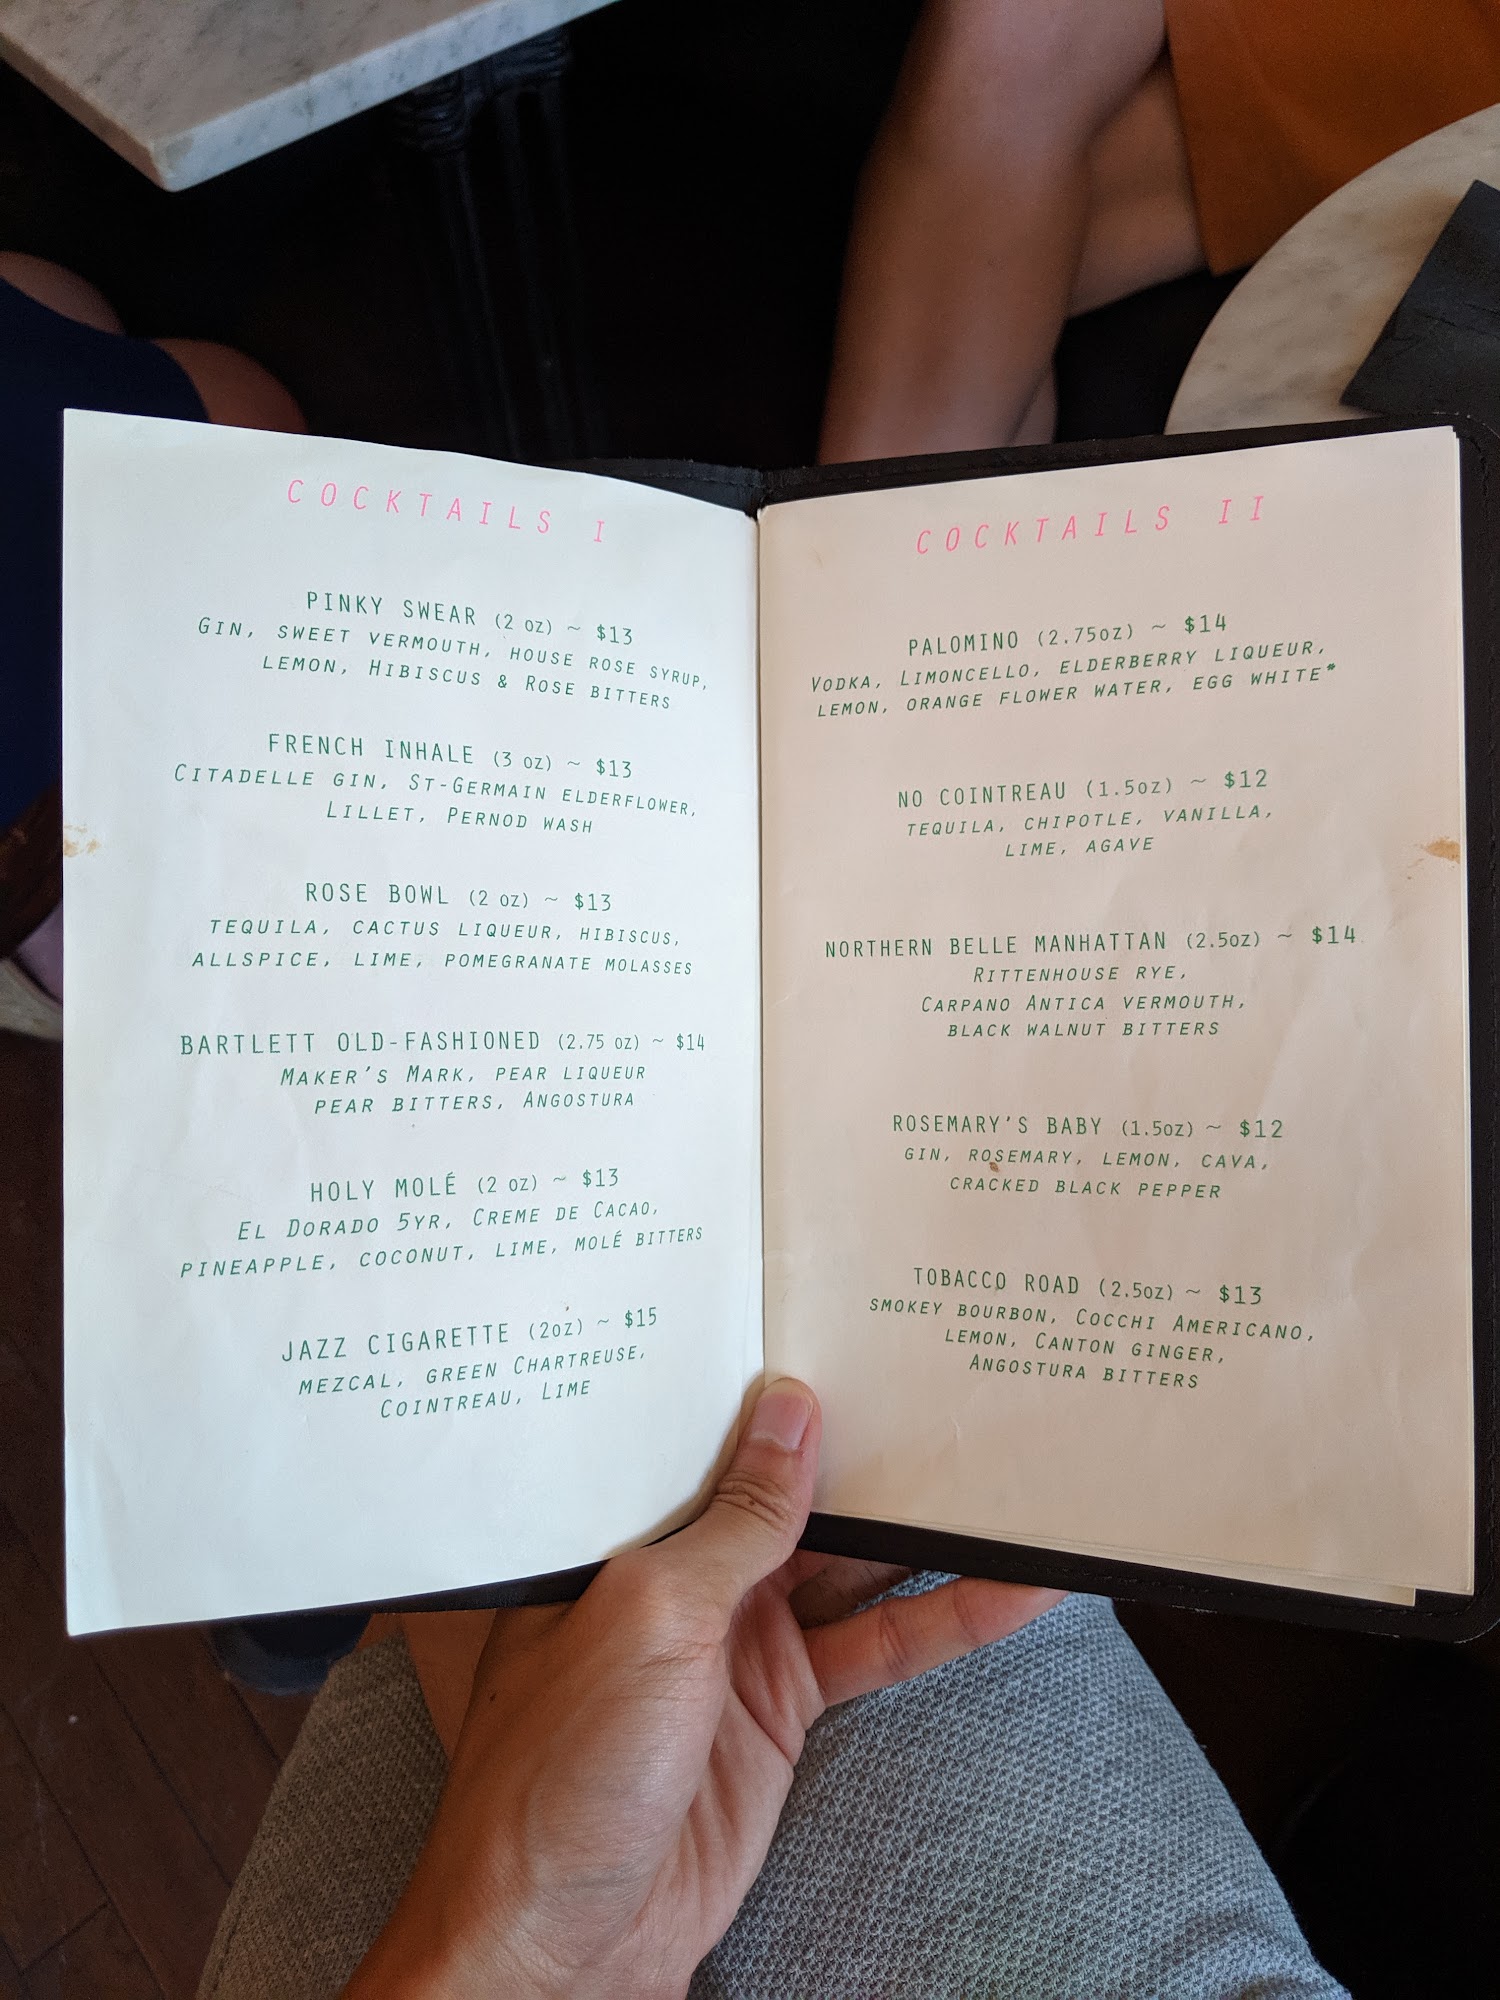 COCKTAILS I
PINKY SWEAR (2 oz) ~ $13
GIN, SWEET VERMOUTH, HOUSE ROSE SYRUP,
LEMON, HIBISCUS & ROSE BITTERS
FRENCH INHALE (3 oz) ~ $13
CITADELLE GIN, ST-GERMAIN ELDERFLOWER,
LILLET, PERNOD WASH
ROSE BOWL (2 oz) ~ $13
TEQUILA, CACTUS LIQUEUR, HIBISCUS,
ALLSPICE, LIME, POMEGRANATE MOLASSES
BARTLETT OLD-FASHIONED (2.75 oz) ~ $14
MAKER'S MARK, PEAR LIQUEUR
PEAR BITTERS, ANGOSTURA
HOLY MOLÉ (2 oz) ~ $13
EL DORADO 5YR, CREME DE CACAO,
PINEAPPLE, COCONUT, LIME, MOLÉ BITTERS
JAZZ CIGARETTE (2oz) ~ $15
MEZCAL, GREEN CHARTREUSE,
COINTREAU, LIME
COCKTAILS II
PALOMINO (2.75oz) ~ $14
VODKA, LIMONCELLO, ELDERBERRY LIQUEUR,
LEMON, ORANGE FLOWER WATER, EGG WHITE*
NO COINTREAU (1.5oz) ~ $12
TEQUILA, CHIPOTLE, VANILLA,
LIME, AGAVE
NORTHERN BELLE MANHATTAN (2.5oz) ~ $14
RITTENHOUSE RYE,
CARPANO ANTICA VERMOUTH,
BLACK WALNUT BITTERS
ROSEMARY'S BABY (1.5oz) ~ $12
GIN, ROSEMARY, LEMON, CAVA,
CRACKED BLACK PEPPER
TOBACCO ROAD (2.5oz) ~ $13
SMOKEY BOURBON, COCCHI AMERICANO,
LEMON, CANTON GINGER,
ANGOSTURA BITTERS